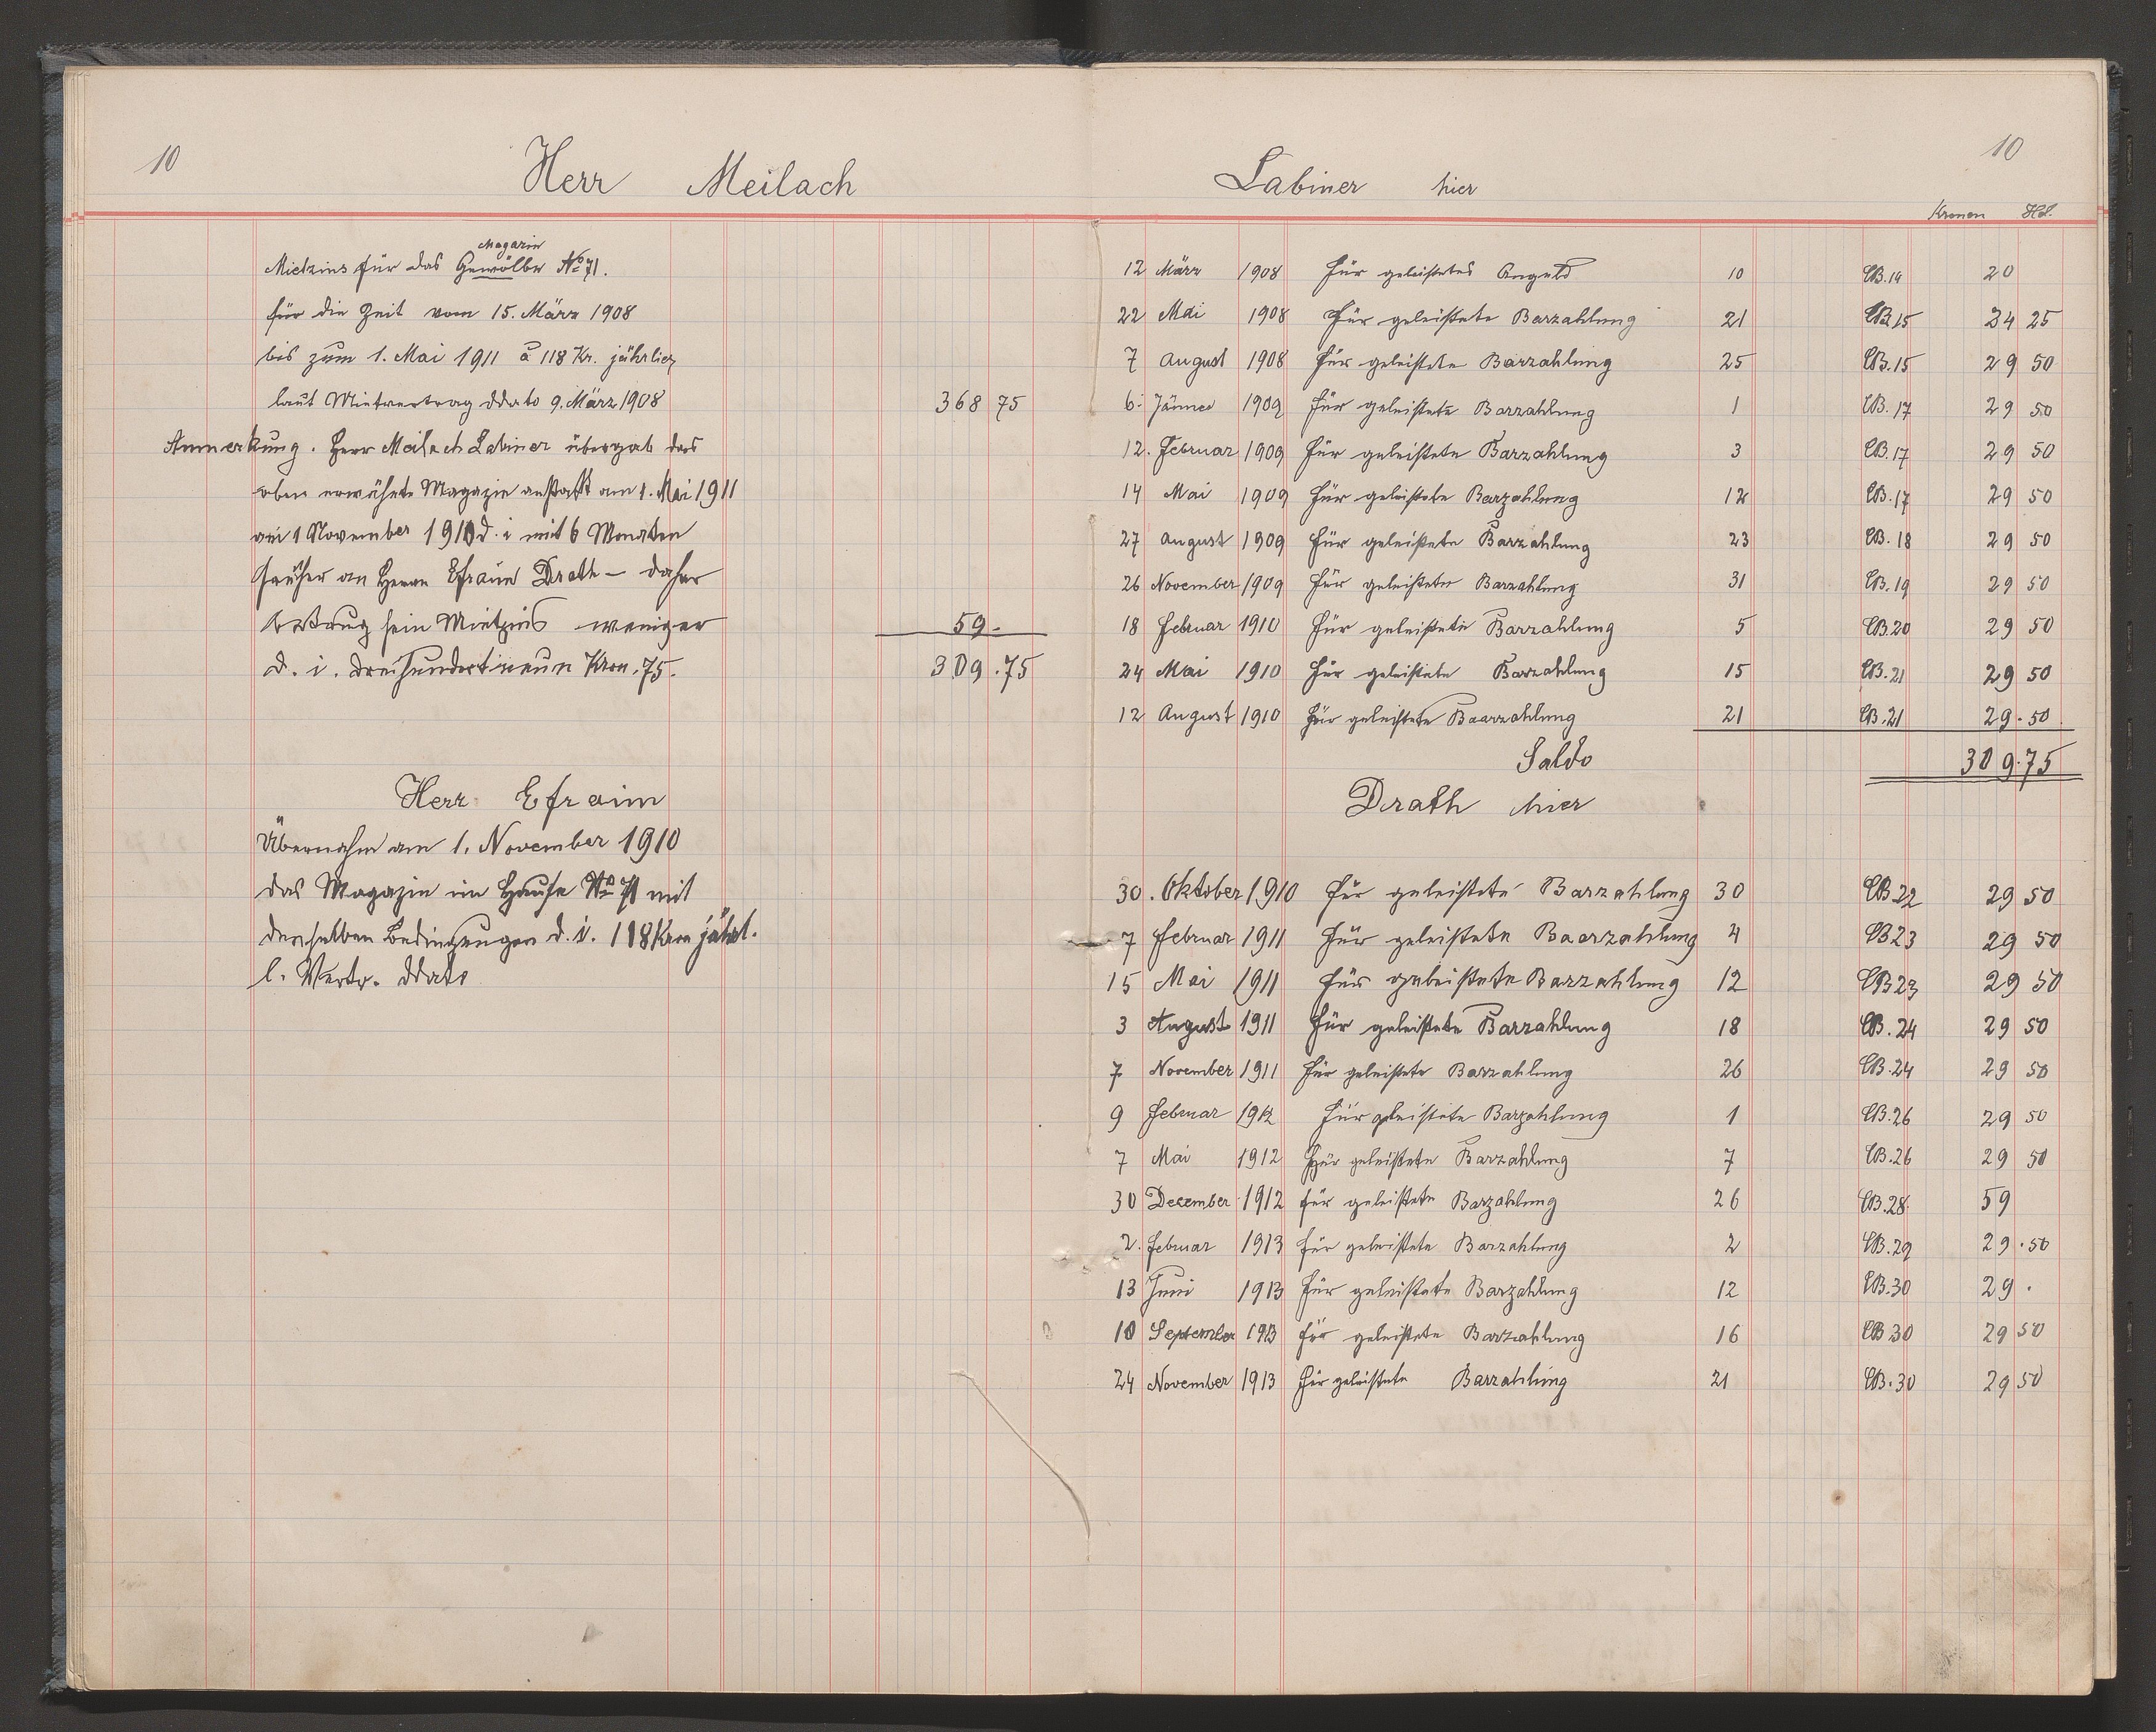 10
Herr Meilach
Magazin
Mietzins für das Gewölbe No 71.
für die Zeit vom 15. März 1908
bis zum 1. Mai 1911 à 118 Kr. jährlich
laut Mietvertrag ddato 9. März 1908 368 75
Anmerkung. Herr Meilach Labiner übergab das
oben erwähnte Magazin anstatt am 1. Mai 1911
am 1 November 1910 d. i mit 6 Monaten
früher an Herrn Efraim Drath – daher
betrug sein Mietzins weniger 59 -
d. i. dreihundertneun Kron. 75. 309.75
Herr Efraim
Übernahm am 1. November 1910
das Magazin im Hause No 71 mit
denselben Bedingungen d. i. 118 Kron jährl.
l. Vertr. ddato
10
Labiner hier
Kronen Hel.
12 März 1908 Für geleistetes Angeld 10 CB.14 20
22 Mai 1908 Für geleistete Barzahlung 21 CB.15 34 25
7 August 1908 Für geleistete Barzahlung 25 CB.15 29 50
6. Jänner 1909 für geleistete Barzahlung 1 CB.17 29 50
12. Februar 1909 für geleistete Barzahlung 3 CB.17 29 50
14 Mai 1909 für geleistete Barzahlung 12 CB.17 29 50
27 August 1909 für geleistete Barzahlung 23 CB.18 29 50
26 November 1909 für geleistete Barzahlung 31 CB.19 29 50
18 Februar 1910 für geleistete Barzahlung 5 CB.20 29 50
24 Mai 1910 für geleistete Barzahlung 15 CB.21 29 50
12 August 1910 für geleistete Baarzahlung 21 CB.21 29.50
Saldo 309.75
Drath hier
30. Oktober 1910 für geleistete Barzahlung 30 CB 22 29 50
7 Februar 1911 für geleistete Baarzahlung 4 CB 23 29 50
15 Mai 1911 für geleistete Barzahlung 12 CB 23 29 50
3 August 1911 für geleistete Barzahlung 18 CB.24 29 50
7 November 1911 für geleistete Barzahlung 26 CB.24 29 50
9 Februar 1912 für geleistete Barzahlung 1 CB.26 29 50
7 Mai 1912 für geleistete Barzahlung 7 CB.26 29 50
30 December 1912 für geleistete Barzahlung 26 CB.28. 59
2. Februar 1913 für geleistete Barzahlung 2 CB.29 29.50
13 Juni 1913 für geleistete Barzahlung 12 CB.30 29.
10 September 1913 für geleistete Barzahlung 16 CB 30 29 50
24 November 1913 für geleistete Barzahlung 21 CB.30 29 50